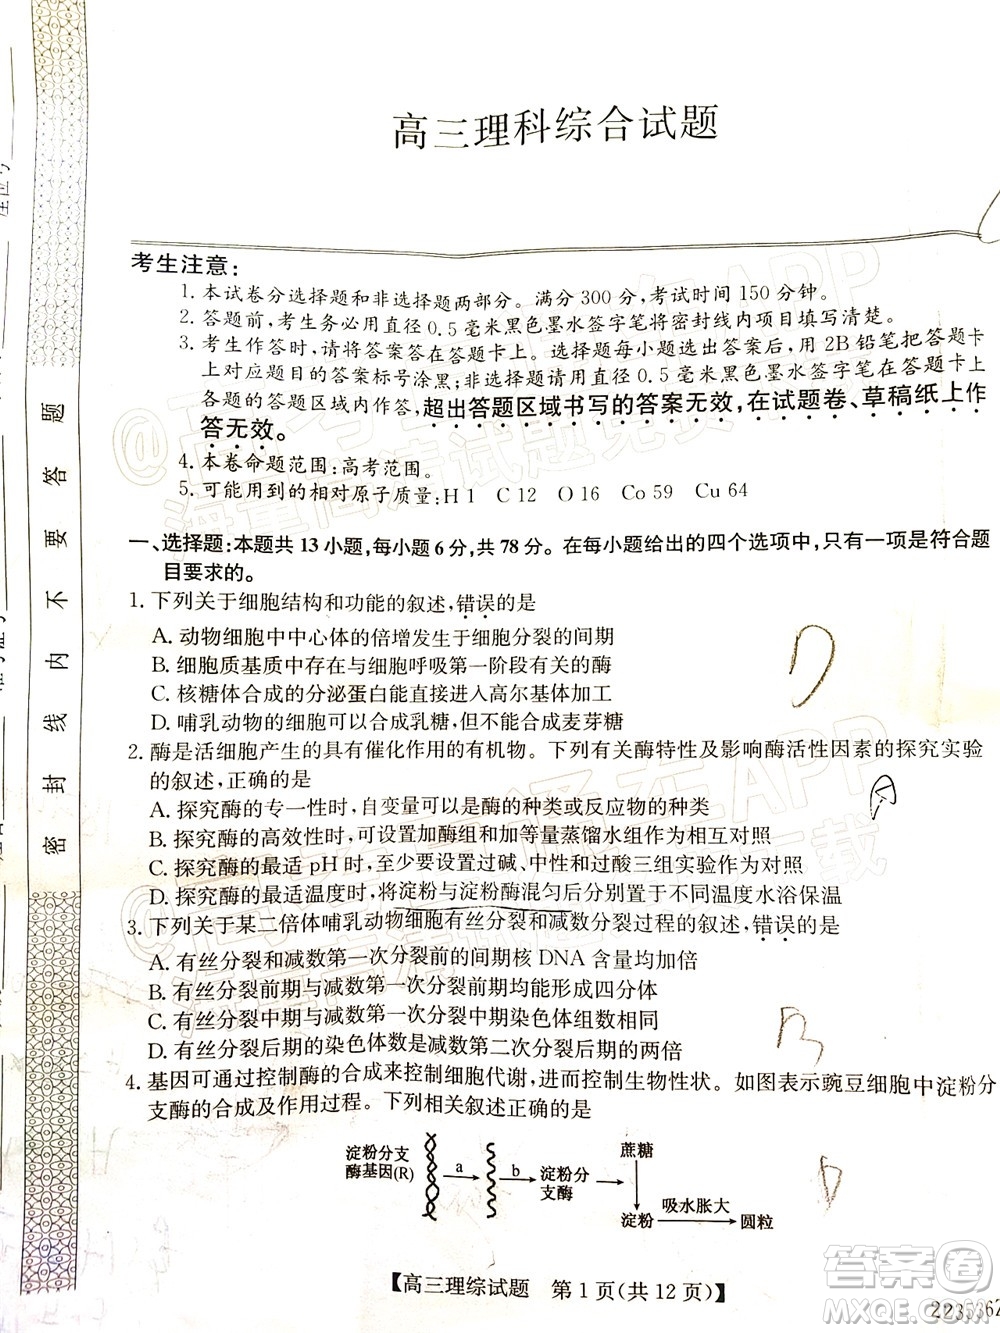 高三理科综合试题
考生注意:
1. 本试卷分选择题和非选择题两部分。满分 300 分,考试时间 150 分钟。
2. 答题前,考生务必用直径 0.5 毫米黑色墨水签字笔将密封线内项目填写清楚。
3. 考生作答时,请将答案答在答题卡上。选择题每小题选出答案后,用 2B 铅笔把答题卡
上对应题目的答案标号涂黑;非选择题请用直径 0.5 毫米黑色墨水签字笔在答题卡上
各题的答题区域内作答,超出答题区域书写的答案无效,在试题卷、草稿纸上作
答无效。
4. 本卷命题范围:高考范围。
5. 可能用到的相对原子质量:H 1 C 12 O 16 Co 59 Cu 64
一、选择题:本题共 13 小题,每小题 6 分,共 78 分。在每小题给出的四个选项中,只有一项是符合题
目要求的。
1. 下列关于细胞结构和功能的叙述,错误的是
A. 动物细胞中中心体的倍增发生于细胞分裂的间期
B. 细胞质基质中存在与细胞呼吸第一阶段有关的酶
C. 核糖体合成的分泌蛋白能进入高尔基体加工
D. 哺乳动物的细胞可以合成乳糖,但不能合成麦芽糖
2. 酶是活细胞产生的具有催化作用的有机物。下列有关酶特性及影响酶活性因素的探究实验
的叙述,正确的是
A. 探究酶的专一性时,自变量可以是酶的种类或反应物的种类
B. 探究酶的高效性时,可设置加酶组和加等量蒸馏水组作为相互对照
C. 探究酶的最适 pH 时,至少要设置过碱、中性和过酸三组实验作为对照
D. 探究酶的最适温度时,将淀粉与淀粉酶混匀后分别置于不同温度水浴保温
3. 下列关于某二倍体哺乳动物细胞有丝分裂和减数分裂过程的叙述,错误的是
A. 有丝分裂和减数第一次分裂前的间期核 DNA 含量均加倍
B. 有丝分裂前期与减数第一次分裂前期均能形成四分体
C. 有丝分裂中期与减数第一次分裂中期染色体组数相同
D. 有丝分裂后期的染色体数是减数第二次分裂后期的两倍
4. 基因可通过控制酶的合成来控制细胞代谢,进而控制生物性状。如图表示豌豆细胞中淀粉分
支酶的合成及作用过程。下列相关叙述正确的是
淀粉分支
酶基因(R)
a
b
淀粉分
支酶
蔗糖
淀粉
吸水胀大
圆粒
【高三理综试题 第 1 页(共 12 页)】
223536Z
密 封 线 内 不 要 答 题
D
A
B
D
答案圈
MXQE.COM